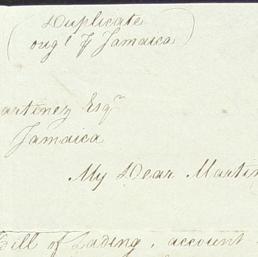 Duplicate
orig^l P Jamaica
artinez Esq^r
Jamaica
My Dear Martin
Bill of Lading, account